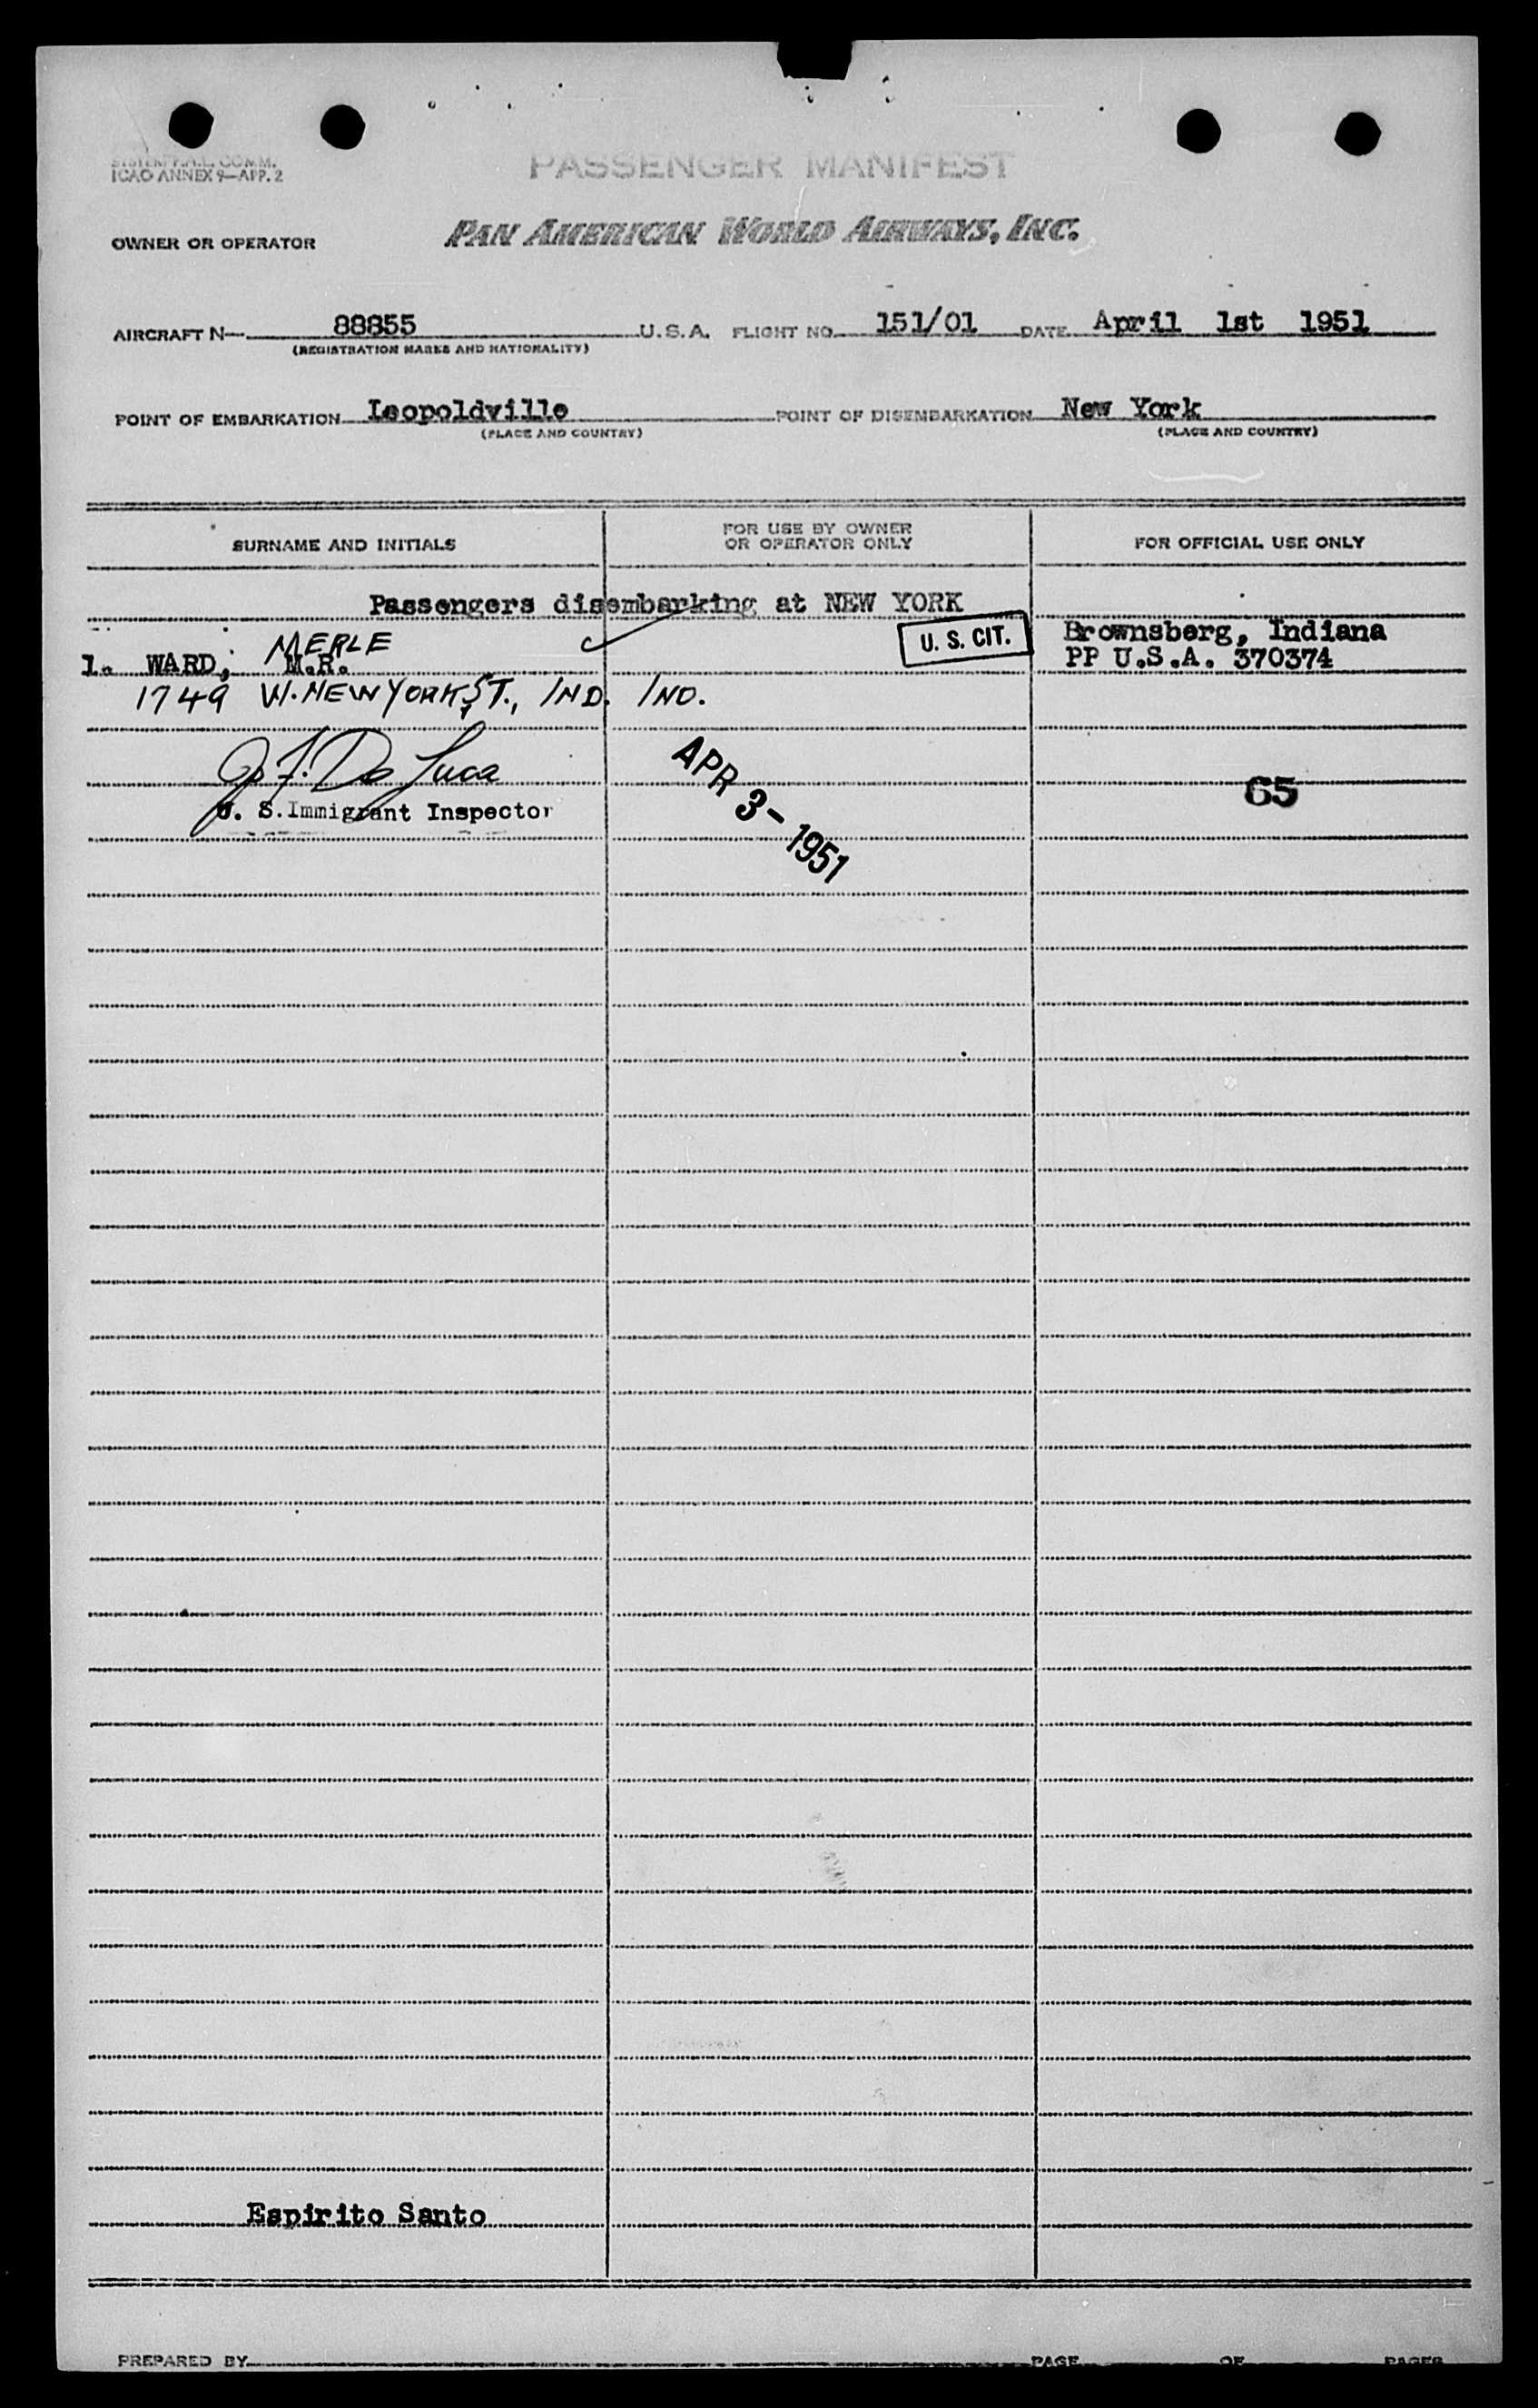 SYSTEM F.A.L. COMM.
ICAO ANNEX 9—APP. 2
PASSENGER MANIFEST
OWNER OR OPERATOR PAN AMERICAN WORLD AIRWAYS, INC.
AIRCRAFT N— 88855 U.S.A. FLIGHT NO. 151/01 DATE April 1st 1951
(REGISTRATION MARKS AND NATIONALITY)
POINT OF EMBARKATION Leopoldville POINT OF DISEMBARKATION New York
(PLACE AND COUNTRY) (PLACE AND COUNTRY)
SURNAME AND INITIALS FOR USE BY OWNER OR OPERATOR ONLY FOR OFFICIAL USE ONLY
Passengers disembarking at NEW YORK
MERLE U. S. CIT. Brownsberg, Indiana
1. WARD, M.R. PP U.S.A. 370374
1749 W. NEW YORK ST., IND. IND.
J. F. De Luca
U. S. Immigrant Inspector
APR 3 - 1951
65
Espirito Santo
PREPARED BY PAGE OF PAGES